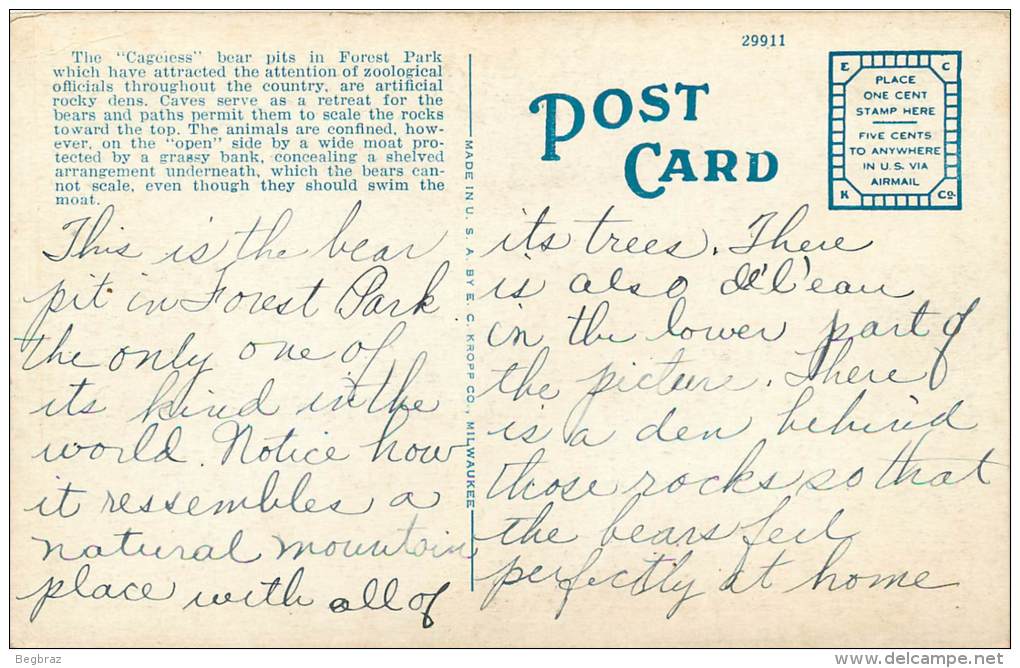 The "Cageless" bear pits in Forest Park
which have attracted the attention of zoological
officials throughout the country, are artificial
rocky dens. Caves serve as a retreat for the
bears and paths permit them to scale the rocks
toward the top. The animals are confined, how-
ever, on the "open" side by a wide moat pro-
tected by a grassy bank, concealing a shelved
arrangement underneath, which the bears can-
not scale, even though they should swim the
moat.
This is the bear
pit in Forest Park
the only one of
its kind in the
world. Notice how
it ressembles a
natural mountain
place with all of
MADE IN U. S. A. BY E. C. KROPP CO., MILWAUKEE
29911
POST
CARD
E C
PLACE
ONE CENT
STAMP HERE
FIVE CENTS
TO ANYWHERE
IN U.S. VIA
AIRMAIL
K Co.
its trees. There
is also de l'eau
in the lower part of
the picture. There
is a den behind
those rocks so that
the bears feel
perfectly at home
Begbraz
www.delcampe.net